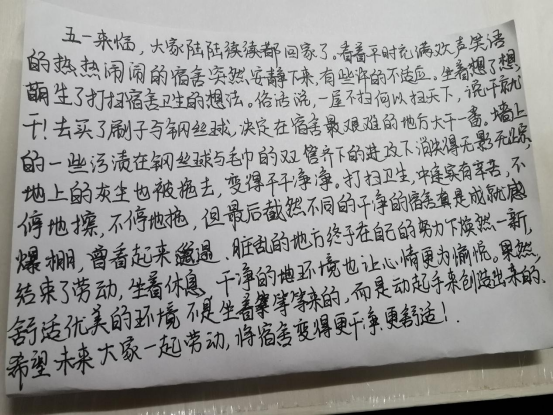 五一来临，大家陆陆续续都回家了。看着平时充满欢声笑语
的热热闹闹的宿舍突然安静下来，有些许的不适应。坐着想了想
萌生了打扫宿舍卫生的想法。俗话说，一屋不扫何以扫天下，说干就
干！去买了刷子与钢丝球，决定在宿舍最艰难的地方大干一番。墙上
的一些污渍在钢丝球与毛巾的双管齐下的进攻下消失得无影无踪，
地上的灰尘也被拖去，变得干干净净。打扫卫生，中途实有辛苦，不
停地擦，不停地拖，但最后截然不同的干净的宿舍真是成就感
爆棚，曾看起来邋遢、脏乱的地方终于在自己的努力下焕然一新，
结束了劳动，坐着休息，干净的地环境也让心情更为愉悦。果然，
舒适优美的环境不是坐着等等来的，而是动起手来创造出来的。
希望未来大家一起劳动，将宿舍变得更干净更舒适！